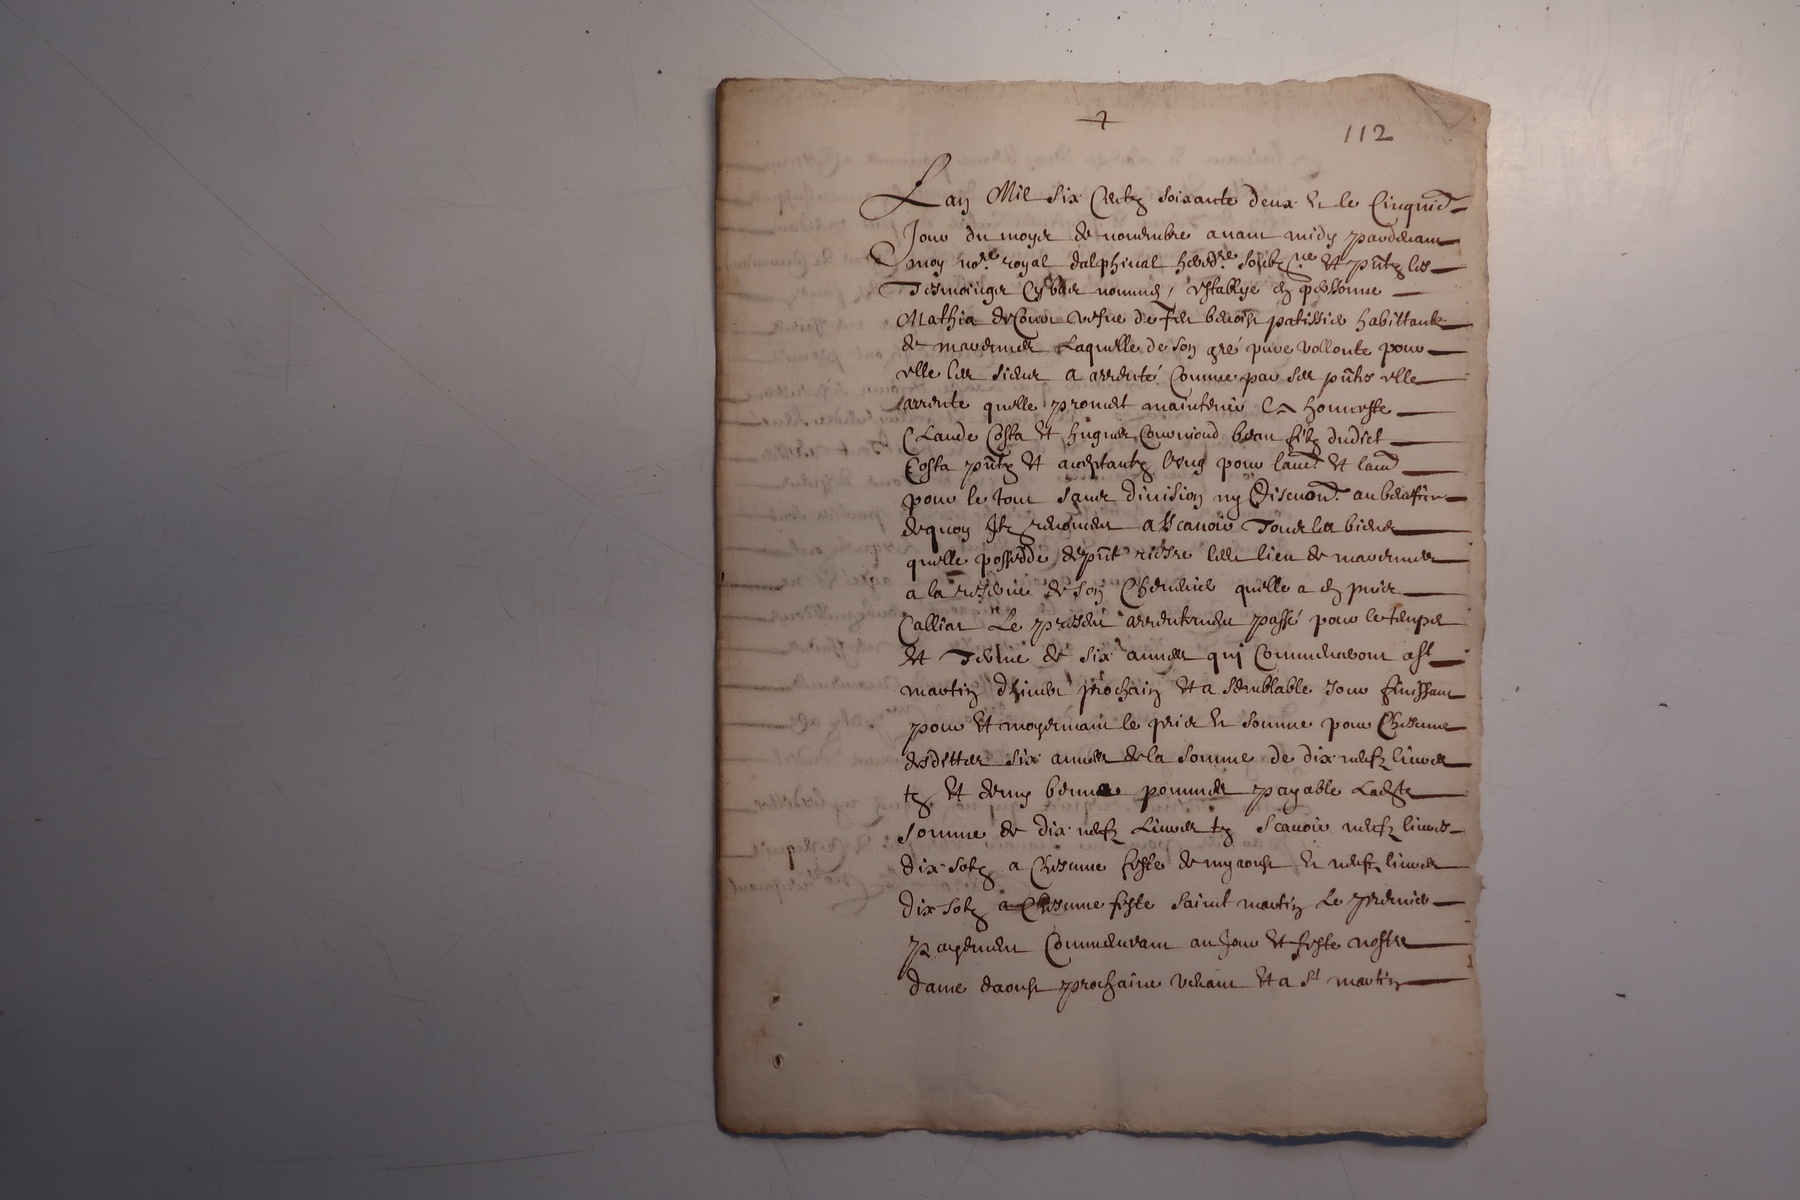 112
Lan Mil six Centz soixante deux et le Cinquie
Jour du moys de novembre avant midy pardevant
moy no.re royal dalphinal hered.re soubz.ne et pntz les
Tesmoinges Cy bas nommes, establye en personne
Mathia vefve de feu benoist patissier habittante
de mavernes Laquelle de son gré pure vollonte pour
elle les sieur a arrenté Comme par ses pntes elle
arrente quelle promet maintenir A honneste
CLaude Costa et hugues beau filz dudict
Costa pntz et aceptantz lung pour laud. et laud
pour le tout sans division ny Discution. au beneffice
dequoy Ilz renoncent asscavoir Tous les biens
quelle possedde depnt riesre led lieu de mavernes
a la reserve de son quelle a en
Calliat Le present arrentement passé pour le temps
et Terme de six annees qui Commenceront a st
martin dhiver prochain et a semblable Jour finissant
pour et moyennant le pris et somme pour Chescune
desdittes six annees de la somme de dix neufz livres
tz et demy benne pommes payable Ladste
somme de dix neufz Livres tz Scavoir neufz livres
dix solz a Chescune feste de myaoust et neufz livres
dix solz a Chescune feste saint martin Le premier
payement Commencant au Jour et feste nostre
dame daoust prochaine venant et a st martin